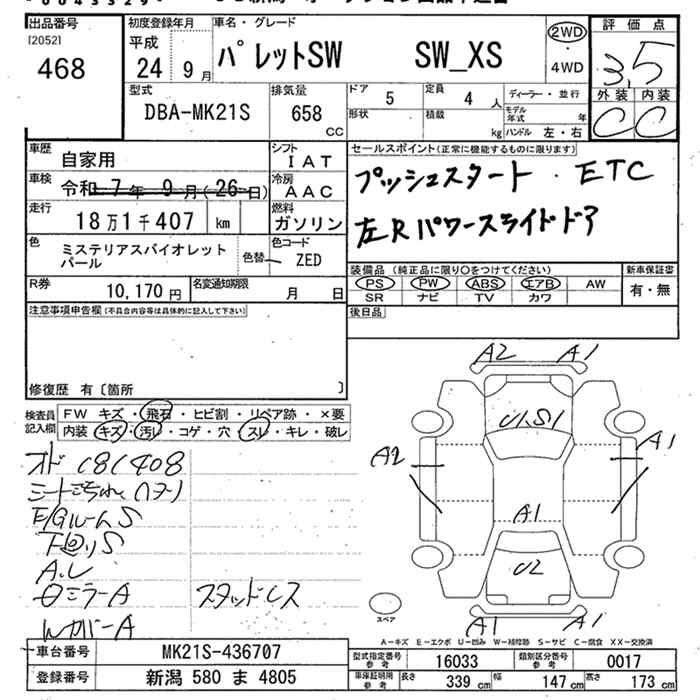 出品番号
[2052]
468
初度登録年月
平成
24 9月
車名・グレード
パレットSW SW_XS
2WD
・
4WD
評価点
3.5
外装 内装
C C
型式
DBA-MK21S
排気量
658
CC
ドア 5
定員 4 人
形状
積載 kg
ディーラー・並行
モデル年式 年
ハンドル 左・右
車歴 自家用
シフト IAT
車検 令和 7年 9月(26日)
冷房 AAC
走行 18万1千407 km
燃料 ガソリン
色 ミステリアスバイオレットパール
色替
色コード ZED
R券 10,170円
名変通知期限 月 日
セールスポイント(正常に機能するものに限ります)
プッシュスタート・ETC
左Rパワースライドドア
装備品(純正品に限り○をつけてください)
新車保証書
PS PW ABS エアB AW
SR ナビ TV カワ
有・無
後日品
注意事項申告欄[不具合内容等は具体的に記入して下さい]
修復歴 有〔箇所 〕
検査員記入欄
FW キズ・飛石・ヒビ割・リペア跡・×要
内装 キズ・汚レ・コゲ・穴・スレ・キレ・破レ
オド 181408
E/GルームS
下回りS
スタッドレス
A2 A1
U1.S1
A2
A1
A1
U2
A1 A1
スペア
A-キズ E-エクボ U-凹み W-補修跡 S-サビ C-腐食 XX-交換済
車台番号 MK21S-436707
登録番号 新潟 580 ま 4805
型式指定番号 参考 16033
類別区分番号 参考 0017
車庫証明用 参考 長さ 339 cm 幅 147 cm 高さ 173 cm